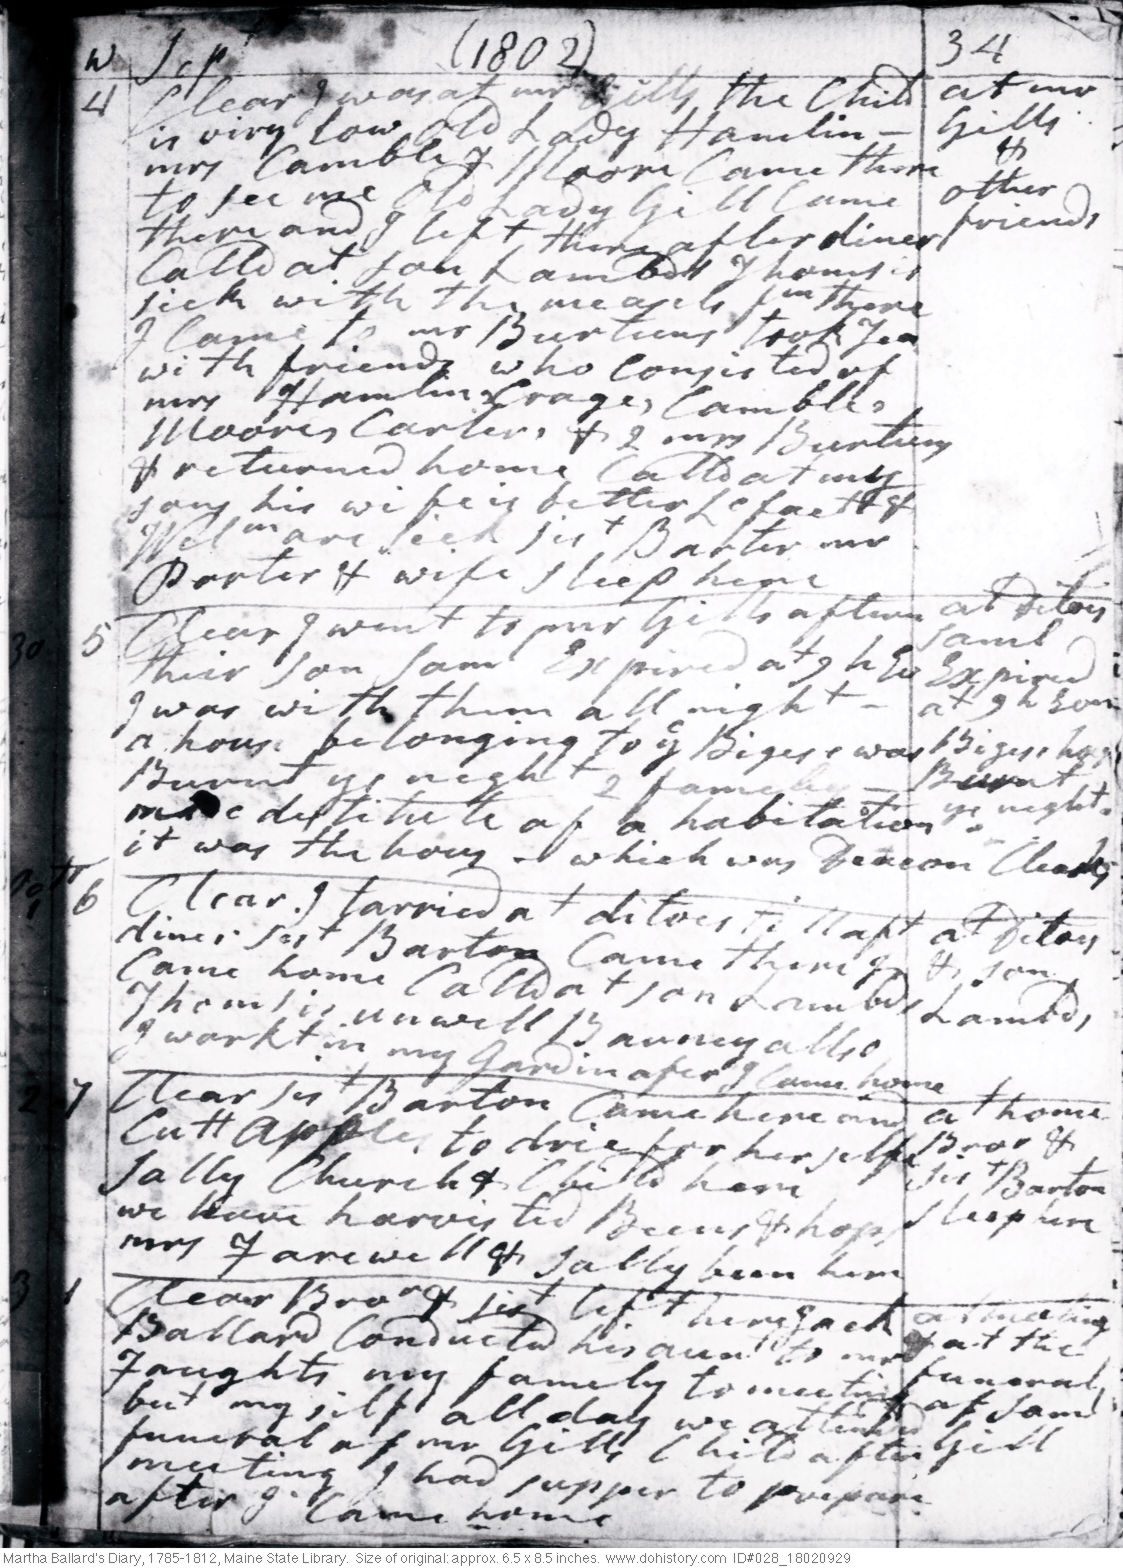 w Sep^t (1802) 34
4 Clear I was at mr Gills the Child
is viry low, Old Lady Hamlin –
mrs Camble & Moore Came there
to see me Old Lady Gill Came
there and I left there after diner
Calld at son Lambds Thomas is
sick with the measels f^m there
I Came to mr Burtuns took Tea
with friends who Consisted of
mrs Hamlin, Crage, Camble,
Moore, Carter, & 2 mrs Burtuns
& returned home Calld at my
sons his wife is better &
W^m are sick sis^t Barter mr
Porter & wife sleep here
at mr
Gills
&
other
friends
5 Clear I went to mr Gills aftern
their son Sam^l Expired at 9 h Ev
I was with them all night –
a house belonging to y^e Biges was
Burnt ys night 2 famely
made destitute of a habitation
it was the hous – which was Deacon Clearks
at Ditoes
Saml
Expired
at 9 h Evn
Biges hog
Burnt
ys night
30
6 Clear. I tarried at ditoes till aft
diner. sis^t Barton Came there I
Came home Calld at son Lambds
Thoms is unwell Barney allso
I workt in my Gardin after I Came home
at Ditoes
& son
Lambds
2 7 Clear sis^t Barton Came here and
Cutt Apples, to drie for her self
Sally Church & Child here
we have harvisted Beens & hops
mrs Farewell & Sally been here
at home
Bror &
Sis^t Barton
sleep here
3 1 Clear Bror & sis^t left here Jack
Ballard Conducted his aunt to mr
Faughts my famely to meeting
but my self all day we attended
funeral of mr Gills Child after
meeting I had supper to prepare
after I Came home
at meeting
& at the
funeral
of Saml
Gill
Martha Ballard's Diary, 1785-1812, Maine State Library. Size of original: approx. 6.5 x 8.5 inches. www.dohistory.com ID#028_18020929